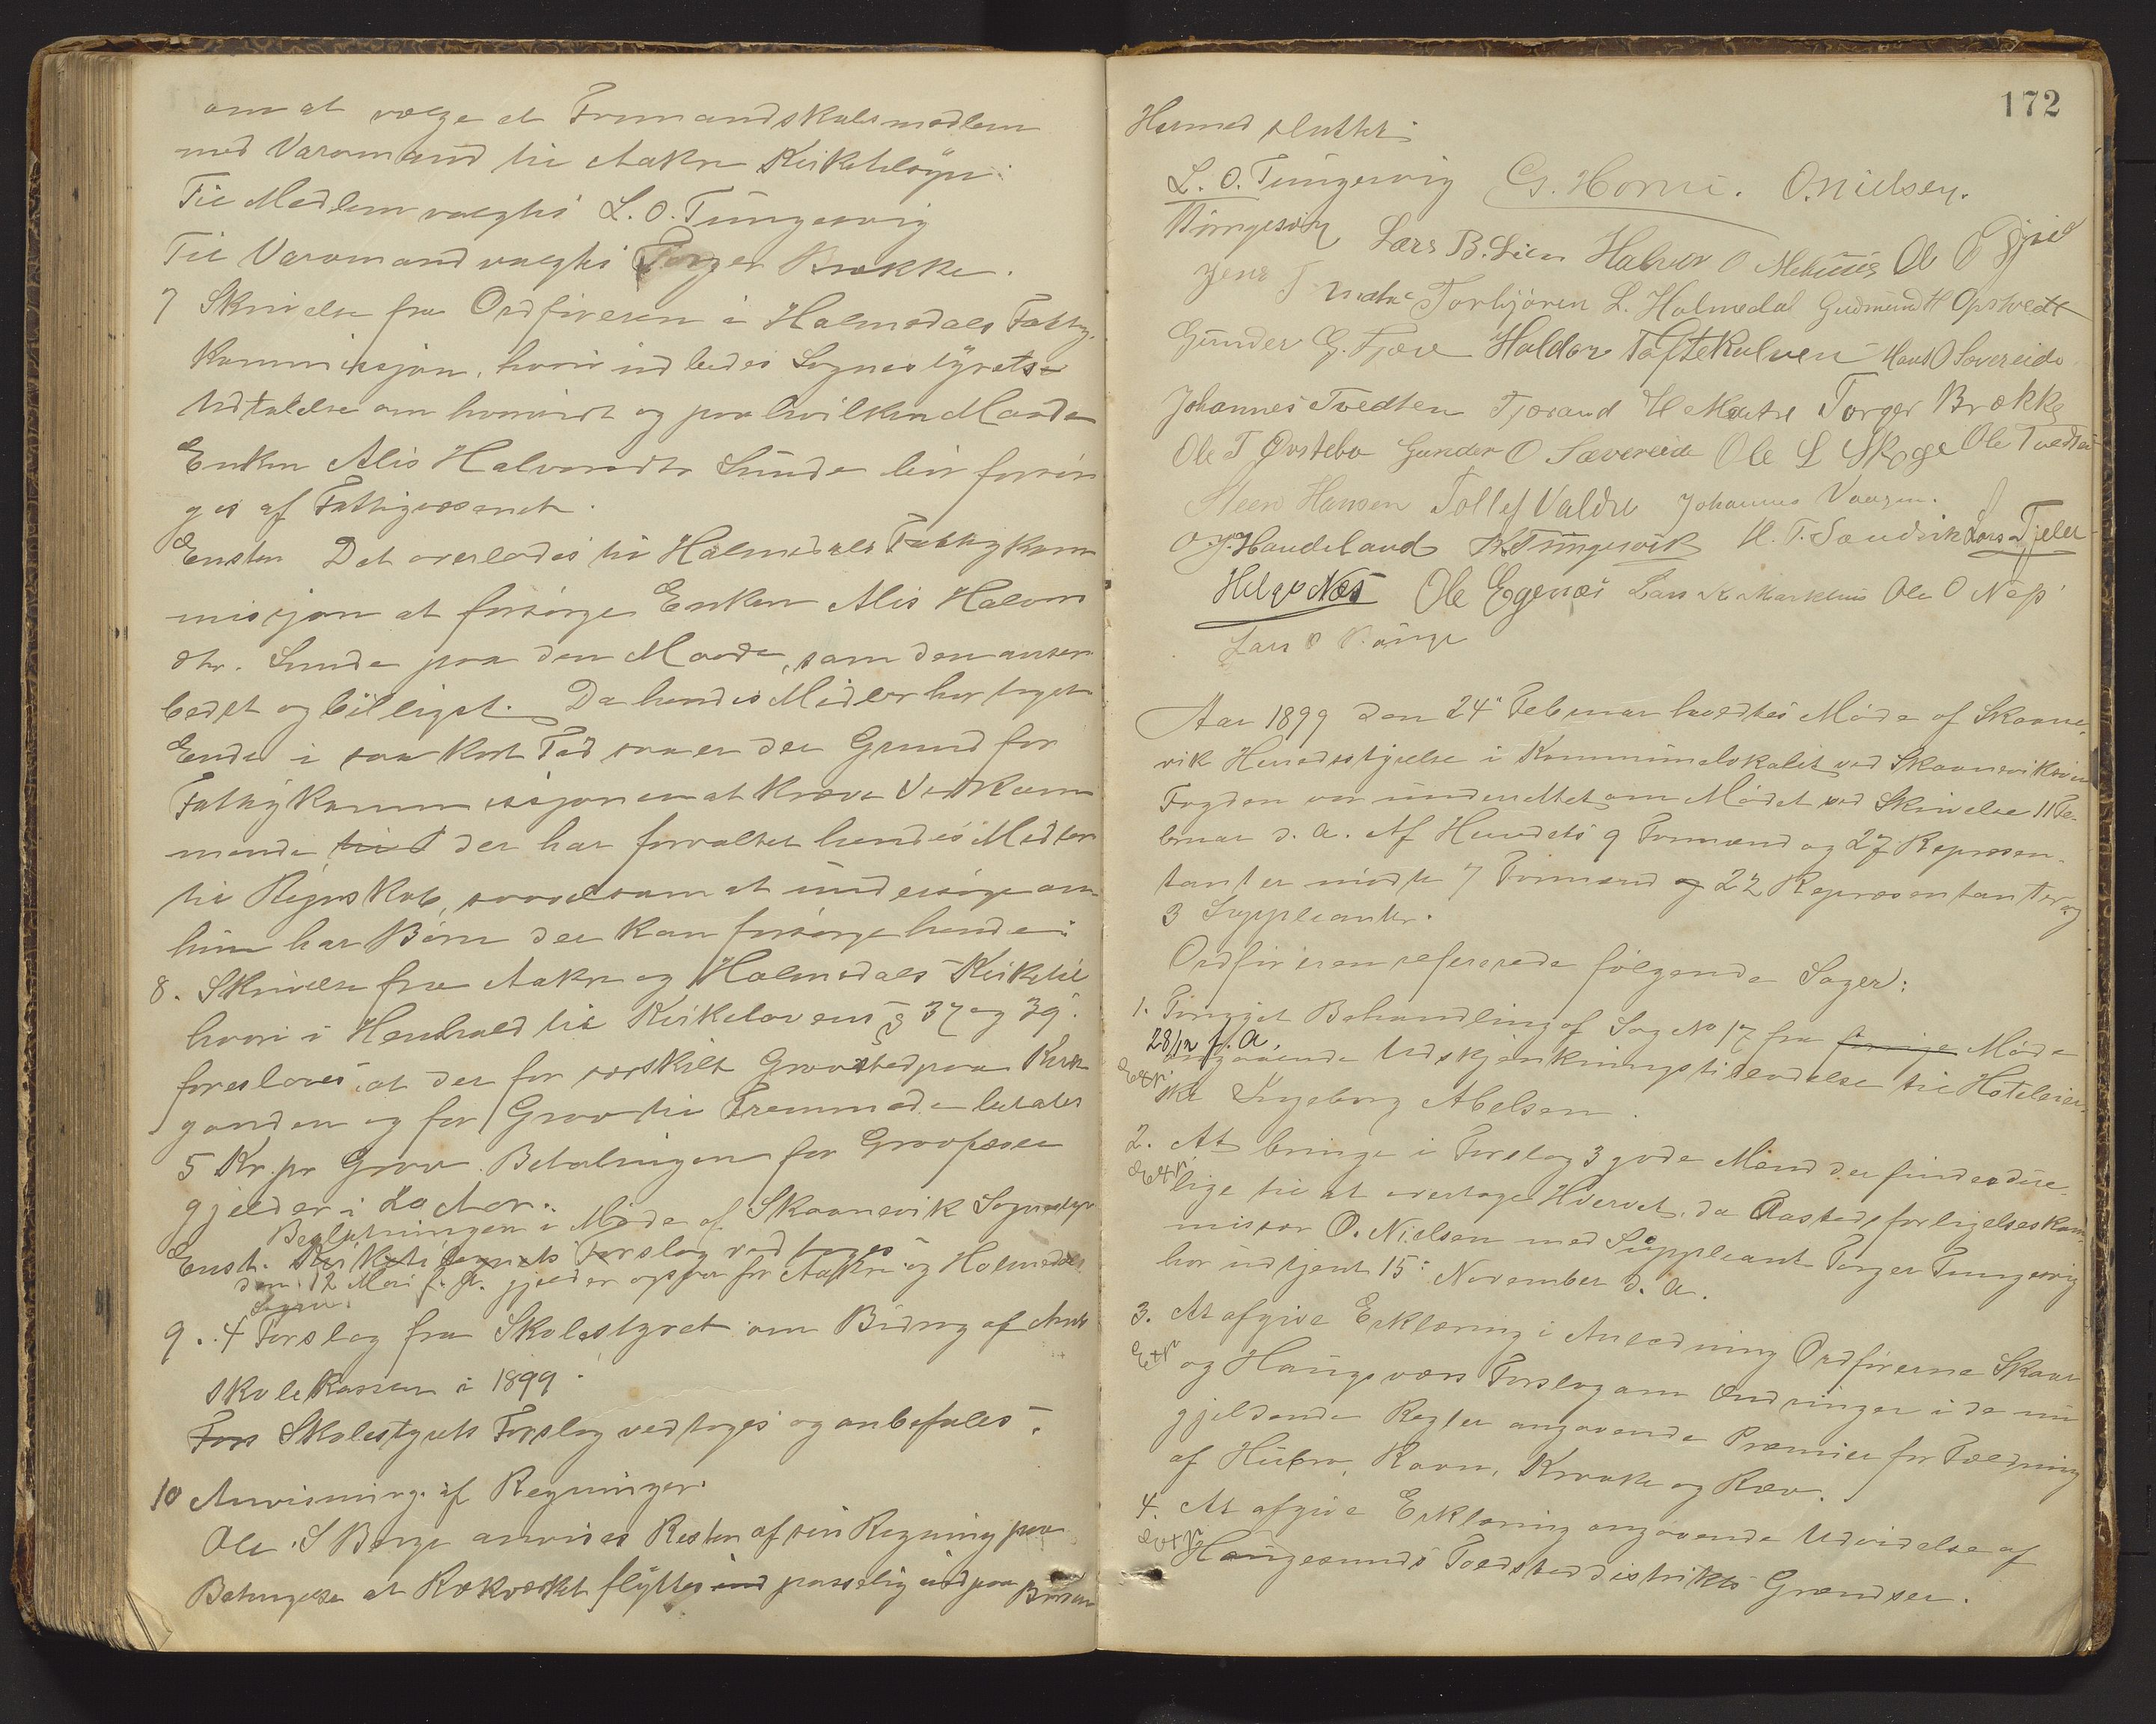 om at vælge et Formandskabsmedlem
med Varamand til Aakre Kirketilsyn:
Til Medlem valgtes L. O. Tungesvig
Til Varamand valgtes Torger Brække.
7 Skrivelse fra Ordføreren i Holmedals Fattig
kommissjon, hvori indledes Sognestyrets
Udtalelse om hvorvidt og paa hvilken Maade
Enken Alis Halvorsdtr Sunde bør forsør
ges af Fattigvæsenet.
Enst. Det overlades til Holmedals Fattigkom
missjon at forsørge Enken Alis Halvors
dtr. Sunde paa den Maade, som den anser
bedst og billigst. Da hendes Midler har taget
Ende i saa kort Tid saa er der Grund for
Fattigkommissjonen at kræve Vedkom
mende til der har forvaltet hendes Midler
til Regnskab, saavelsom at undersøge om
hun har Børn der kan forsørge hende:
8. Skrivelse fra Aakre og Holmedals Kirketil
hvori i Henhold til Kirkelovens § 37 og 39.
foreslaaes at der for særskilt Gravsted paa Kirke
gaarden og for Grav til Fremmede betales
5 Kr. pr Grav. Betalingen for Gravfæste
gjelder i 20 Aar.
Beslutningen i Møde af Skaanevik Sognestyr
Enst. Kirketilsynets Forslag vedtages
den 12 Mai f. A. gjelder ogsaa for Aakre og Holmedal
Sogne.
9. 4 Forslag fra Skolestyret om Bidrag af Amts
skolekassen i 1899.
Fors Skolestyrets Forslag vedtages og anbefales.
10 Anvisning af Regninger.
Ole S Berge anvises Resten af sin Regning paa
Betingelse at Rækværket flyttes ind passelig ind paa Broen
172
Hermed sluttet.
L. O. Tungesvig G. Horne. O. Nielsen.
Lars B. Lien Halvor O Mehuus Ole
Jens Matre Torbjören L. Holmedal Gudmund H Opstvedt
Gunder G. Fjære Haldor Toftekalven Hans O Sævereide
Johannes Tvedten Tjørand H Matre Torger Brække
Ole T Ørstebø Gunder O Sævereide Ole L Skoge Ole Tvedten
Steen Hansen Tollef Valdre Johannes Vaagen.
O. J. Haudeland K. Tungesvik H. T. Sandvik Lars Tjelle
Helge Næs Ole Egenæs Lars K. Markhus Ole O Næs
Lars
Aar 1899 den 24" Februar holdtes Møde af Skaane
vik Herredsstyrelse i Kommunelokalet ved Skaaneviksøen
Fogden var underrettet om Mødet ved Skrivelse 11 Fe-
bruar d. a. Af Herredets 9 Formænd og 27 Repræsen-
tanter mødte 7 Formænd og 22 Repræsentanter og
3 Suppleanter.
Ordføreren refererede følgende Sager:
1. Fornyet Behandling af Sag No 17 fra forrige Møde
28/12 f. a.
angaaende Udskjenkningstilladelse til Hoteleier-
Extr.
ske Ingeborg Abelsen.
2. At bringe i Forslag 3 gode Mænd der findes due-
Extr.
lige til at overtage Hvervet, da Aastedsforligelseskom
missær O. Nielsen med Suppleant Torger Tungesvig
har udtjent 15. November d. a.
3. At afgive Erklæring i Anledning Ordførerne Skaar
Extr
og Haugsværs Forslag om Ændringer i de nu
gjeldende Regler angaaende Præmier for Fældning
af Hubro, Ravn, Kraake og Ræv.
4. At afgive Erklæring angaaende Udvidelse af
Extr
Haugesunds Toldsteddistrikts Grændser.